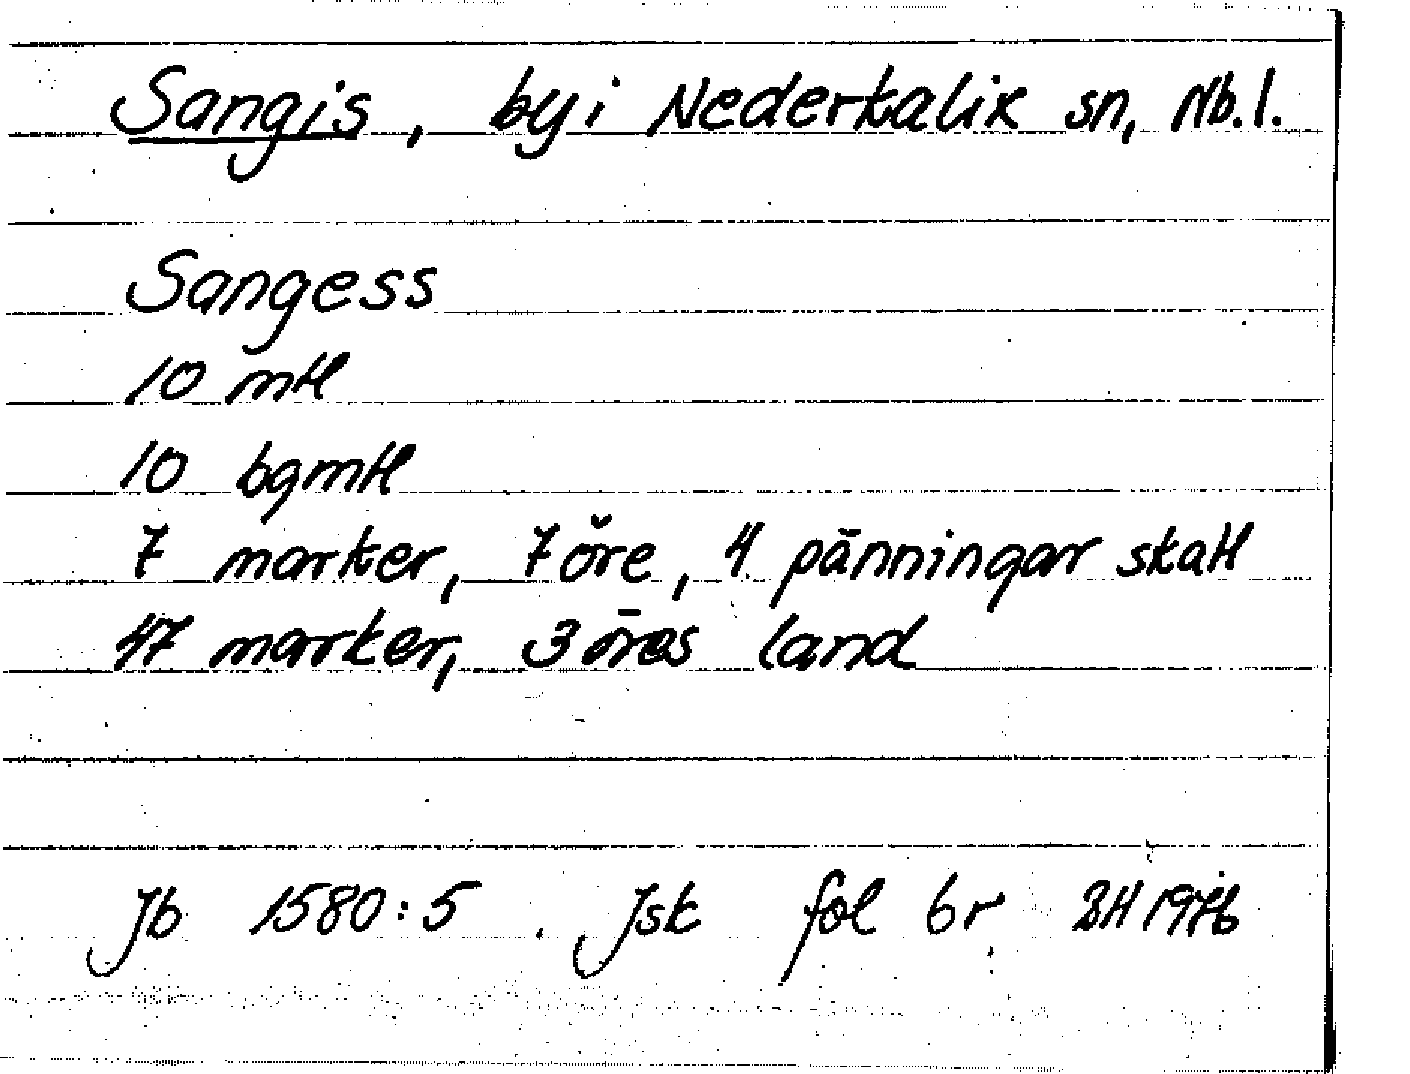 Sangis, by i Nederkalix sn, Nb.l.
Sangess
10 mtl
10 bgmtl
7 marker, 7 öre, 4 pänningar skatt
47 marker, 3 öres land
Jb 1580:5. Jsk fol 6r BH 1976